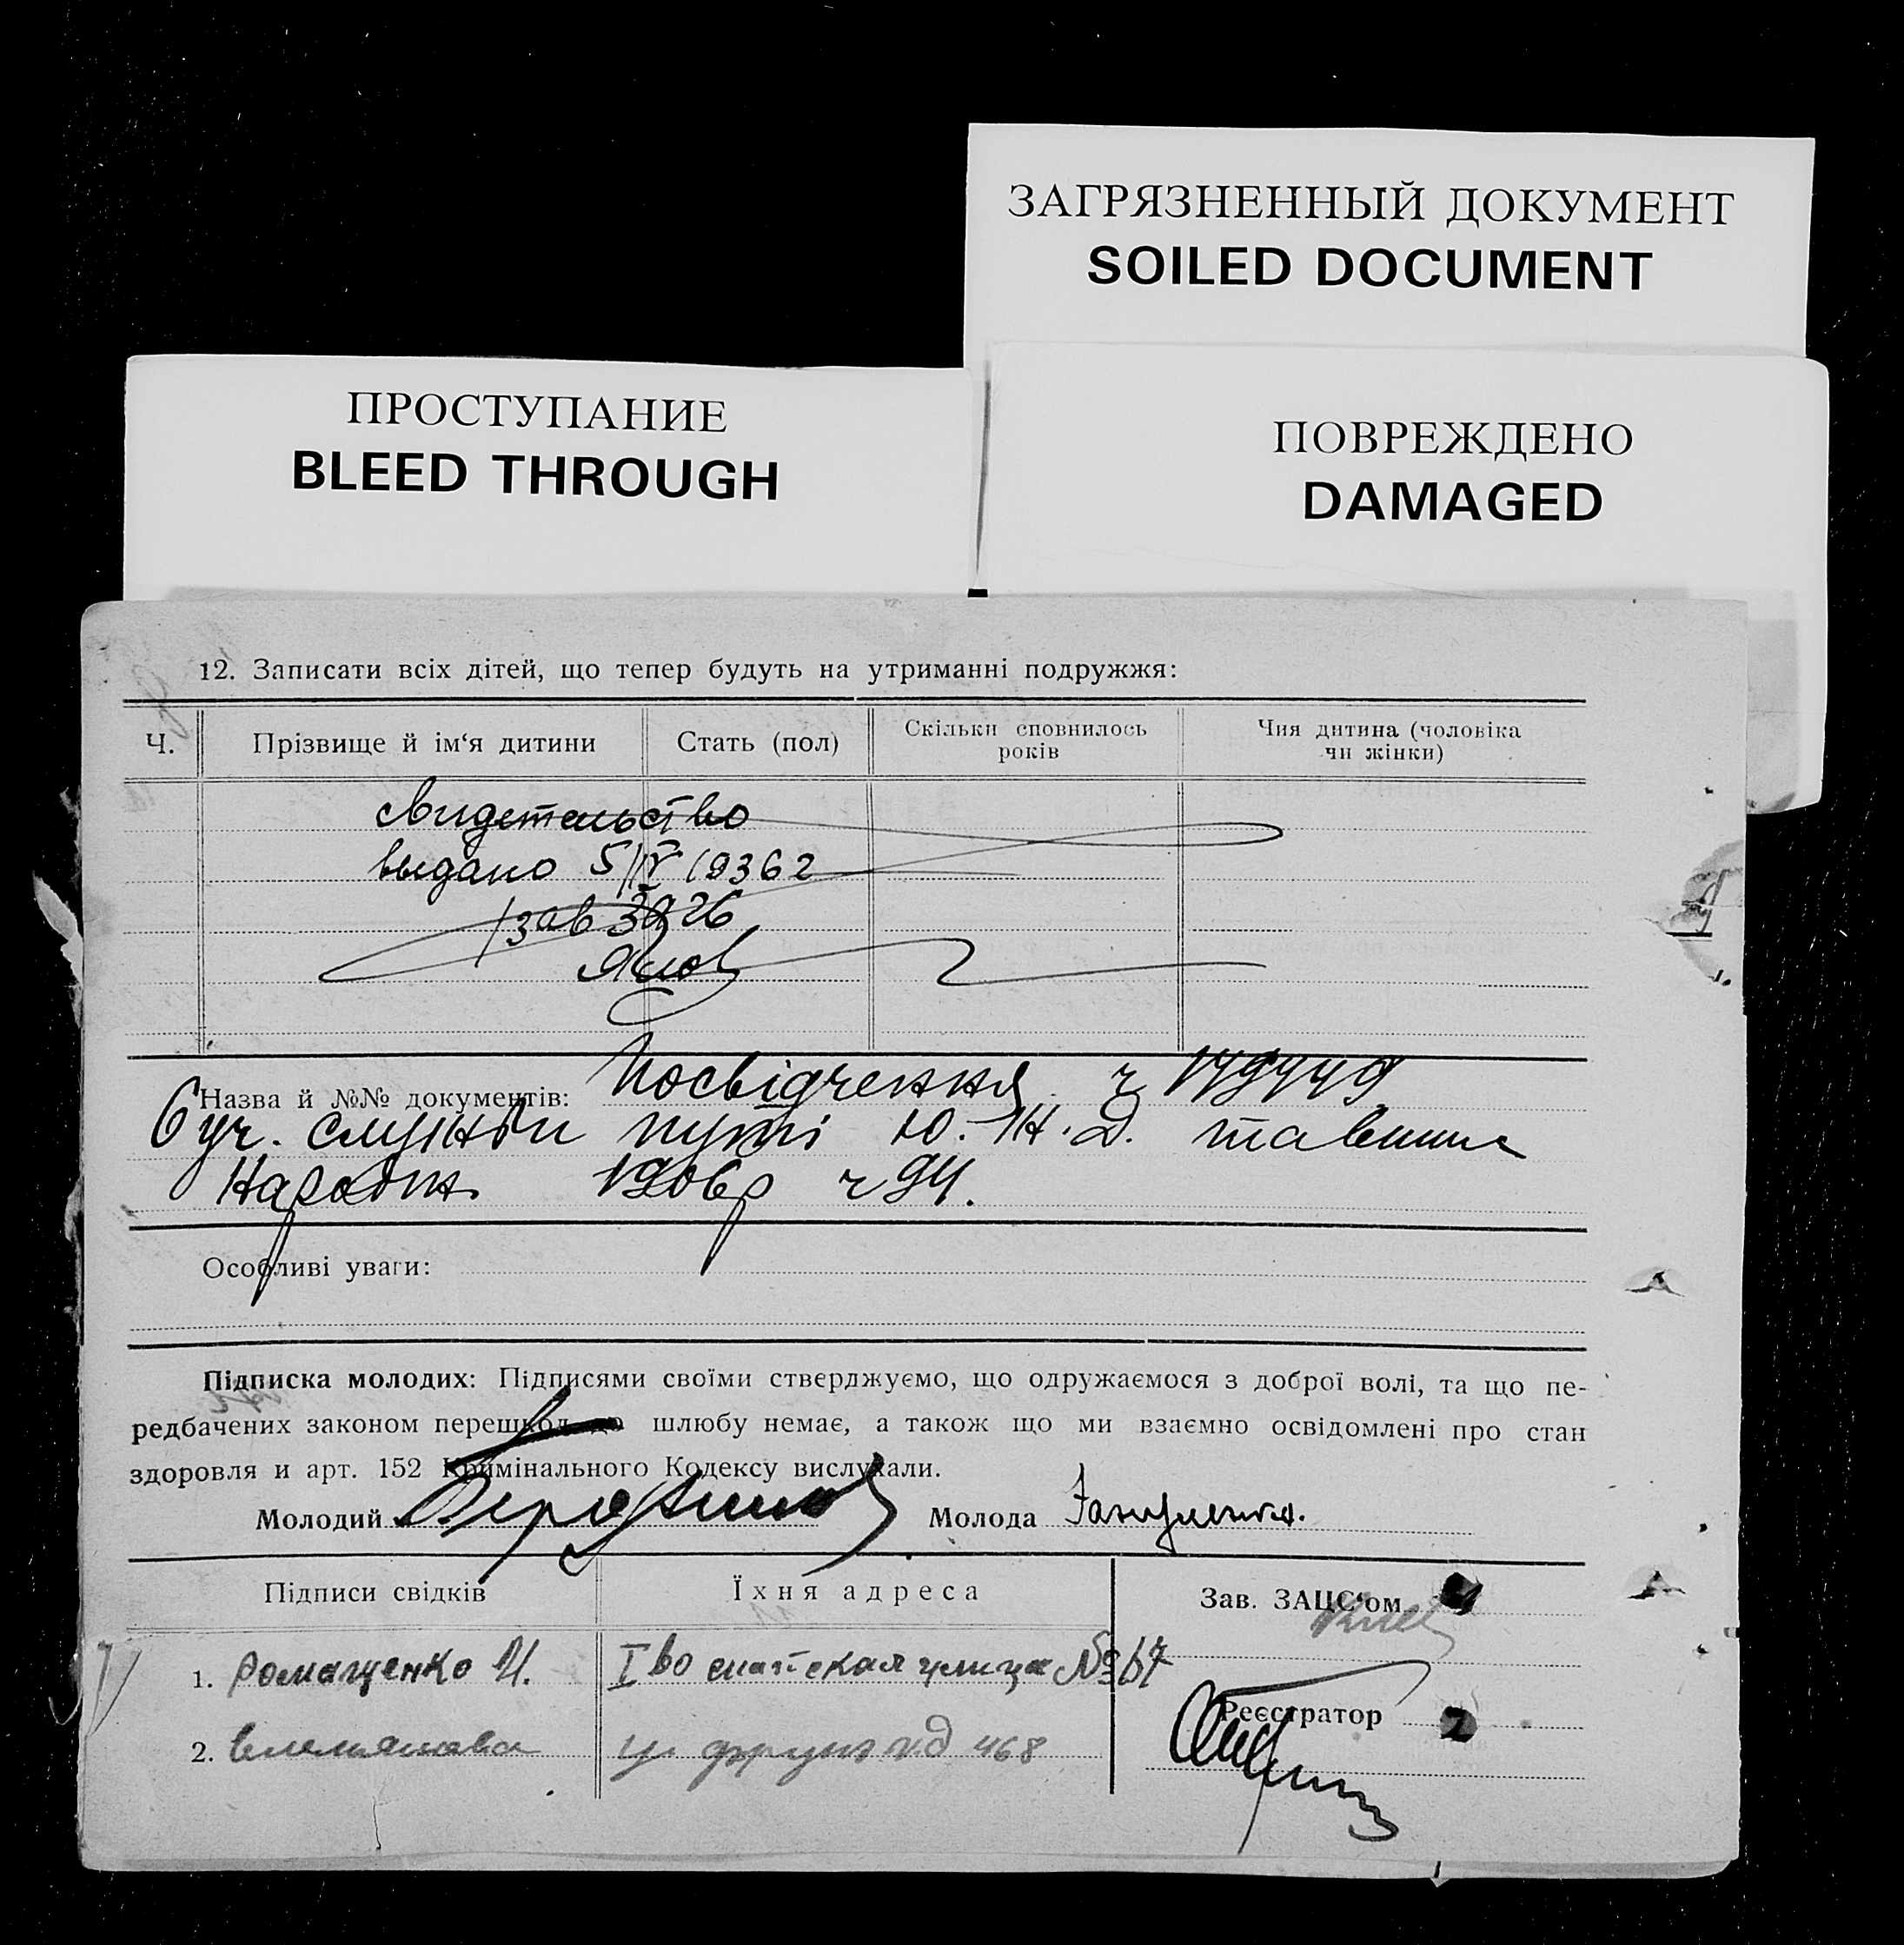 ЗАГРЯЗНЕННЫЙ ДОКУМЕНТ
SOILED DOCUMENT
ПРОСТУПАНИЕ
BLEED THROUGH
ПОВРЕЖДЕНО
DAMAGED
12. Записати всіх дітей, що тепер будуть на утриманні подружжя:
Ч.
Прізвище й ім‘я дитини
Стать (пол)
Скільки сповнилось
років
Чия дитина (чоловіка
чи жінки)
свидетельство
выдано 5/IV 1936 г
Назва й №№ документів: Посвідчення ч
6 уч. служби путі Ю.-Н.Д. та
Народж 1906р ч 94.
Особливі уваги:
Підписка молодих: Підписями своїми стверджуємо, що одружаємося з доброї волі, та що пе-
редбачених законом перешкод до шлюбу немає, а також що ми взаємно освідомлені про стан
здоровля и арт. 152 Кримінального Кодексу вислухали.
Молодий
Молода
Підписи свідків
Їхня адреса
Зав. ЗАЦС‘ом
1. Ромащенко И.
улица № 67
2.
468
Реєстратор